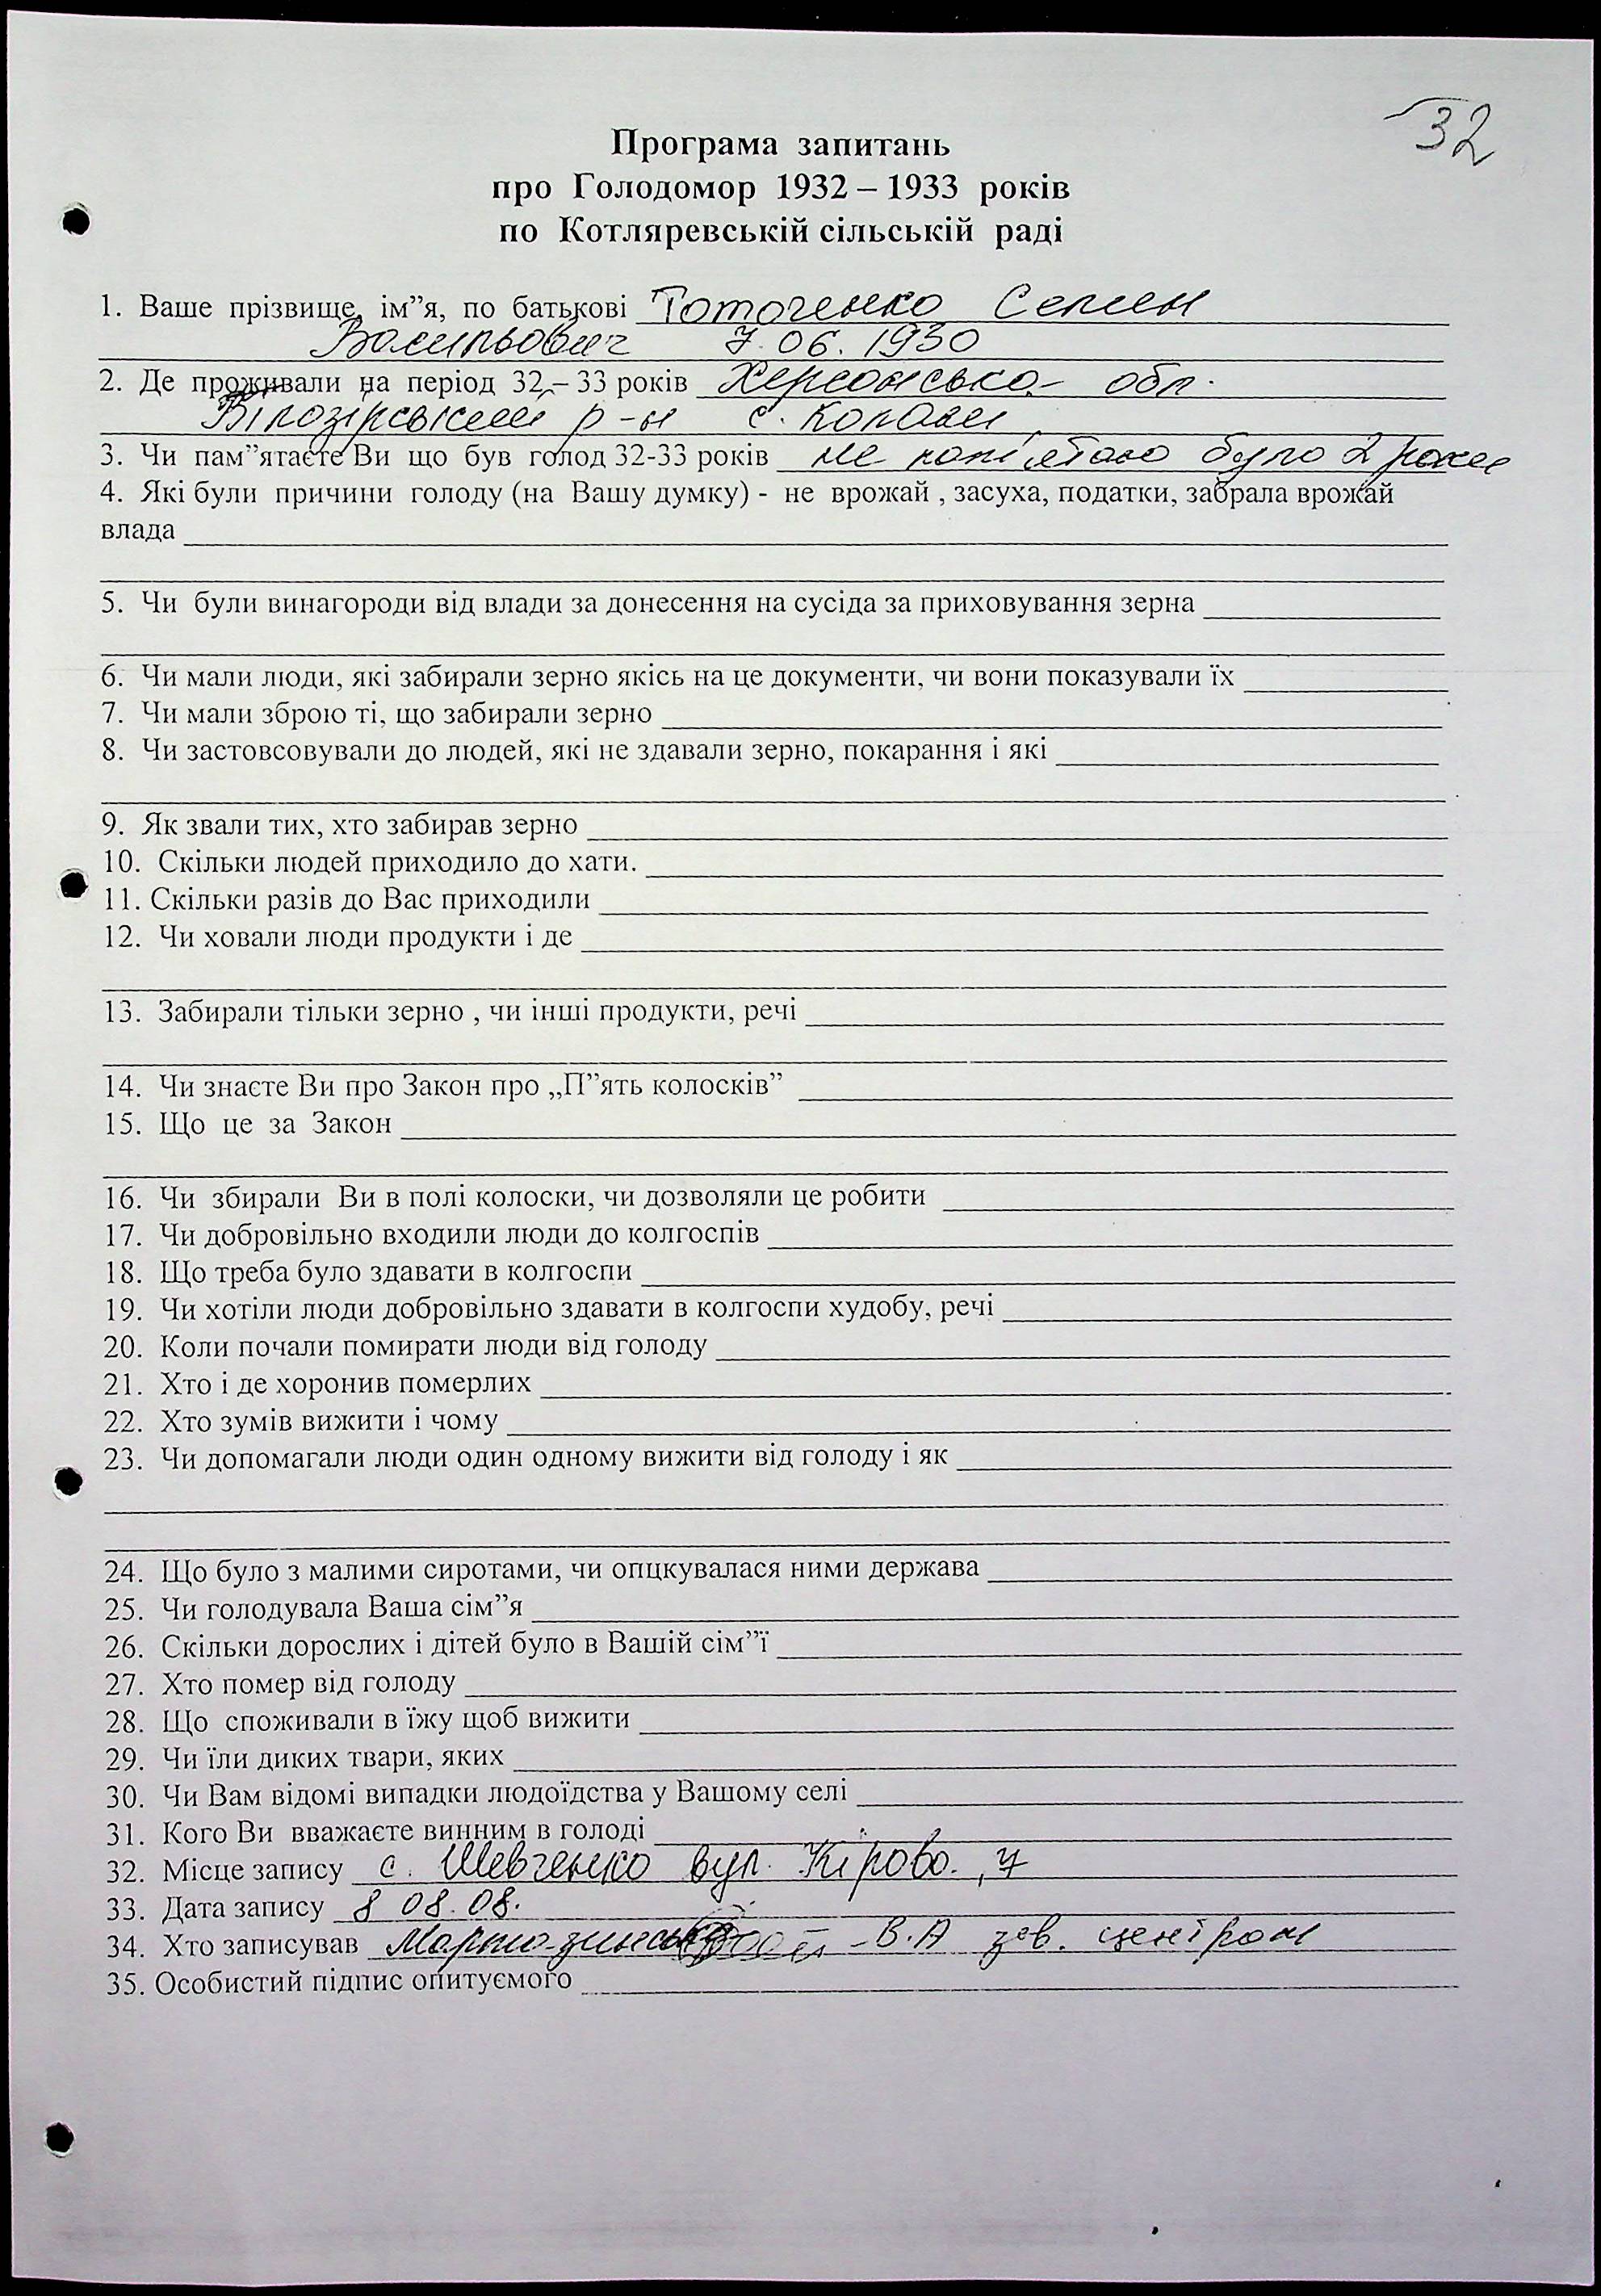 32
Програма запитань
про Голодомор 1932 – 1933 років
по Котляревській сільській раді
1. Ваше прізвище, ім”я, по батькові Тоточенко Семен
Васильович 7.06.1930
2. Де проживали на період 32 – 33 років Херсонська обл.
Білозірський р-н с. Копани
3. Чи пам”ятаєте Ви що був голод 32-33 років не пам'ятаю було 2 роки
4. Які були причини голоду (на Вашу думку) - не врожай , засуха, податки, забрала врожай
влада
5. Чи були винагороди від влади за донесення на сусіда за приховування зерна
6. Чи мали люди, які забирали зерно якісь на це документи, чи вони показували їх
7. Чи мали зброю ті, що забирали зерно
8. Чи застовсовували до людей, які не здавали зерно, покарання і які
9. Як звали тих, хто забирав зерно
10. Скільки людей приходило до хати.
11. Скільки разів до Вас приходили
12. Чи ховали люди продукти і де
13. Забирали тільки зерно , чи інші продукти, речі
14. Чи знаєте Ви про Закон про „П”ять колосків”
15. Що це за Закон
16. Чи збирали Ви в полі колоски, чи дозволяли це робити
17. Чи добровільно входили люди до колгоспів
18. Що треба було здавати в колгоспи
19. Чи хотіли люди добровільно здавати в колгоспи худобу, речі
20. Коли почали помирати люди від голоду
21. Хто і де хоронив померлих
22. Хто зумів вижити і чому
23. Чи допомагали люди один одному вижити від голоду і як
24. Що було з малими сиротами, чи опцкувалася ними держава
25. Чи голодувала Ваша сім”я
26. Скільки дорослих і дітей було в Вашій сім”ї
27. Хто помер від голоду
28. Що споживали в їжу щоб вижити
29. Чи їли диких твари, яких
30. Чи Вам відомі випадки людоїдства у Вашому селі
31. Кого Ви вважаєте винним в голоді
32. Місце запису с. Шевченко вул. Кірова, 7
33. Дата запису 8 08.08.
34. Хто записував В.А зав. центром
35. Особистий підпис опитуємого